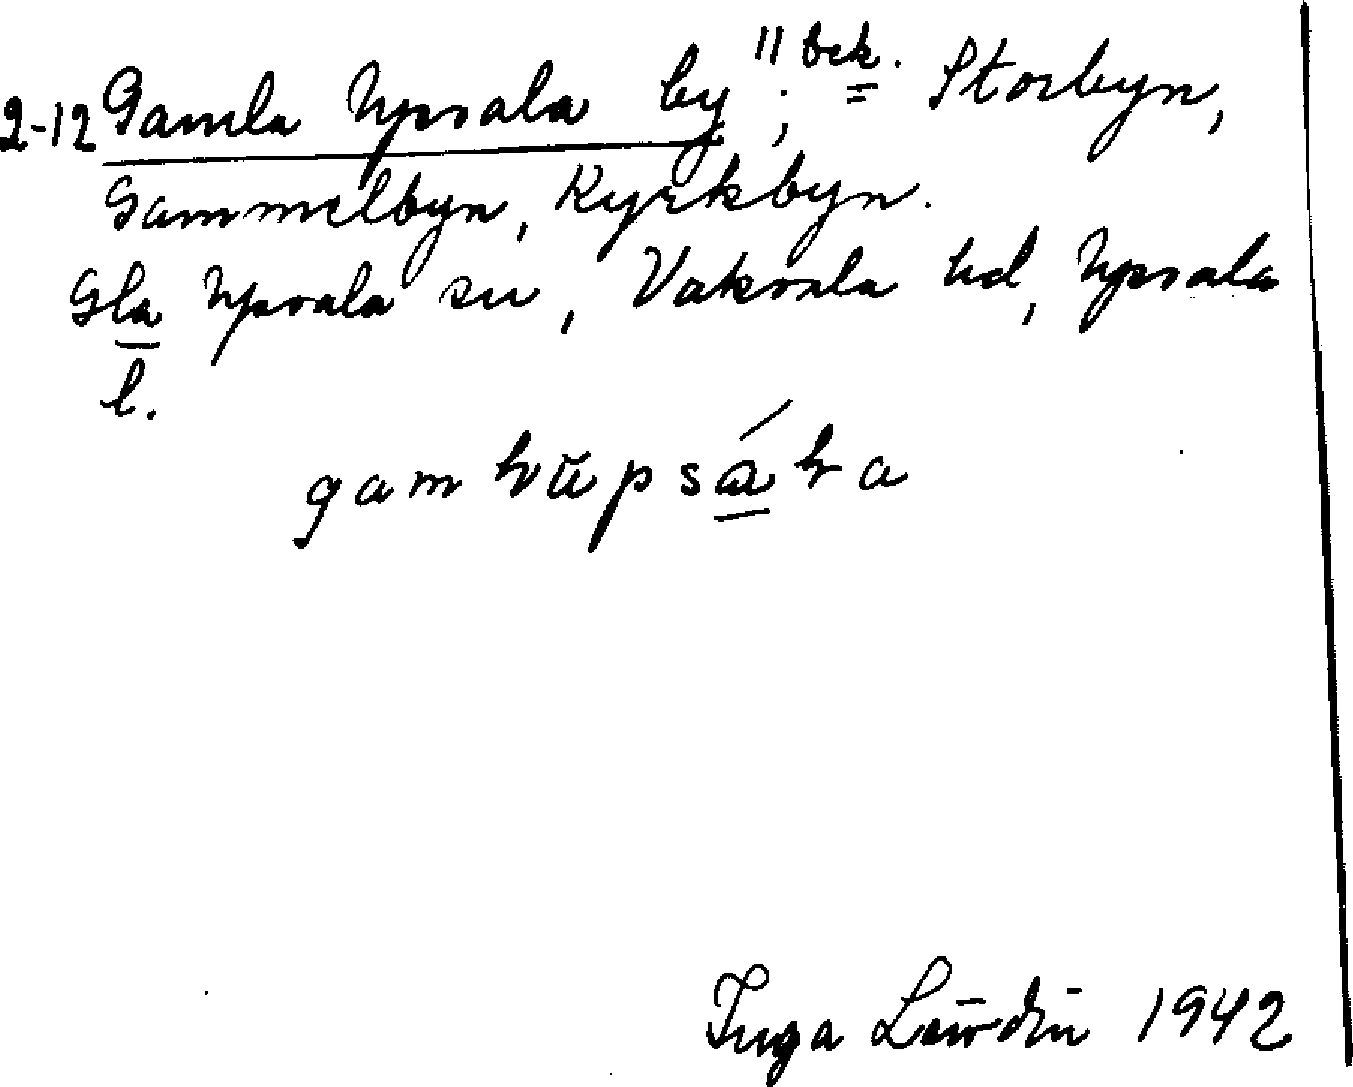 2-12 Gamla Upsala by, 11 bek. = Storbyn,
Gammelbyn, Kyrkbyn.
Gla Upsala sn, Vaksala hd, Upsala
l.
Inga 1942